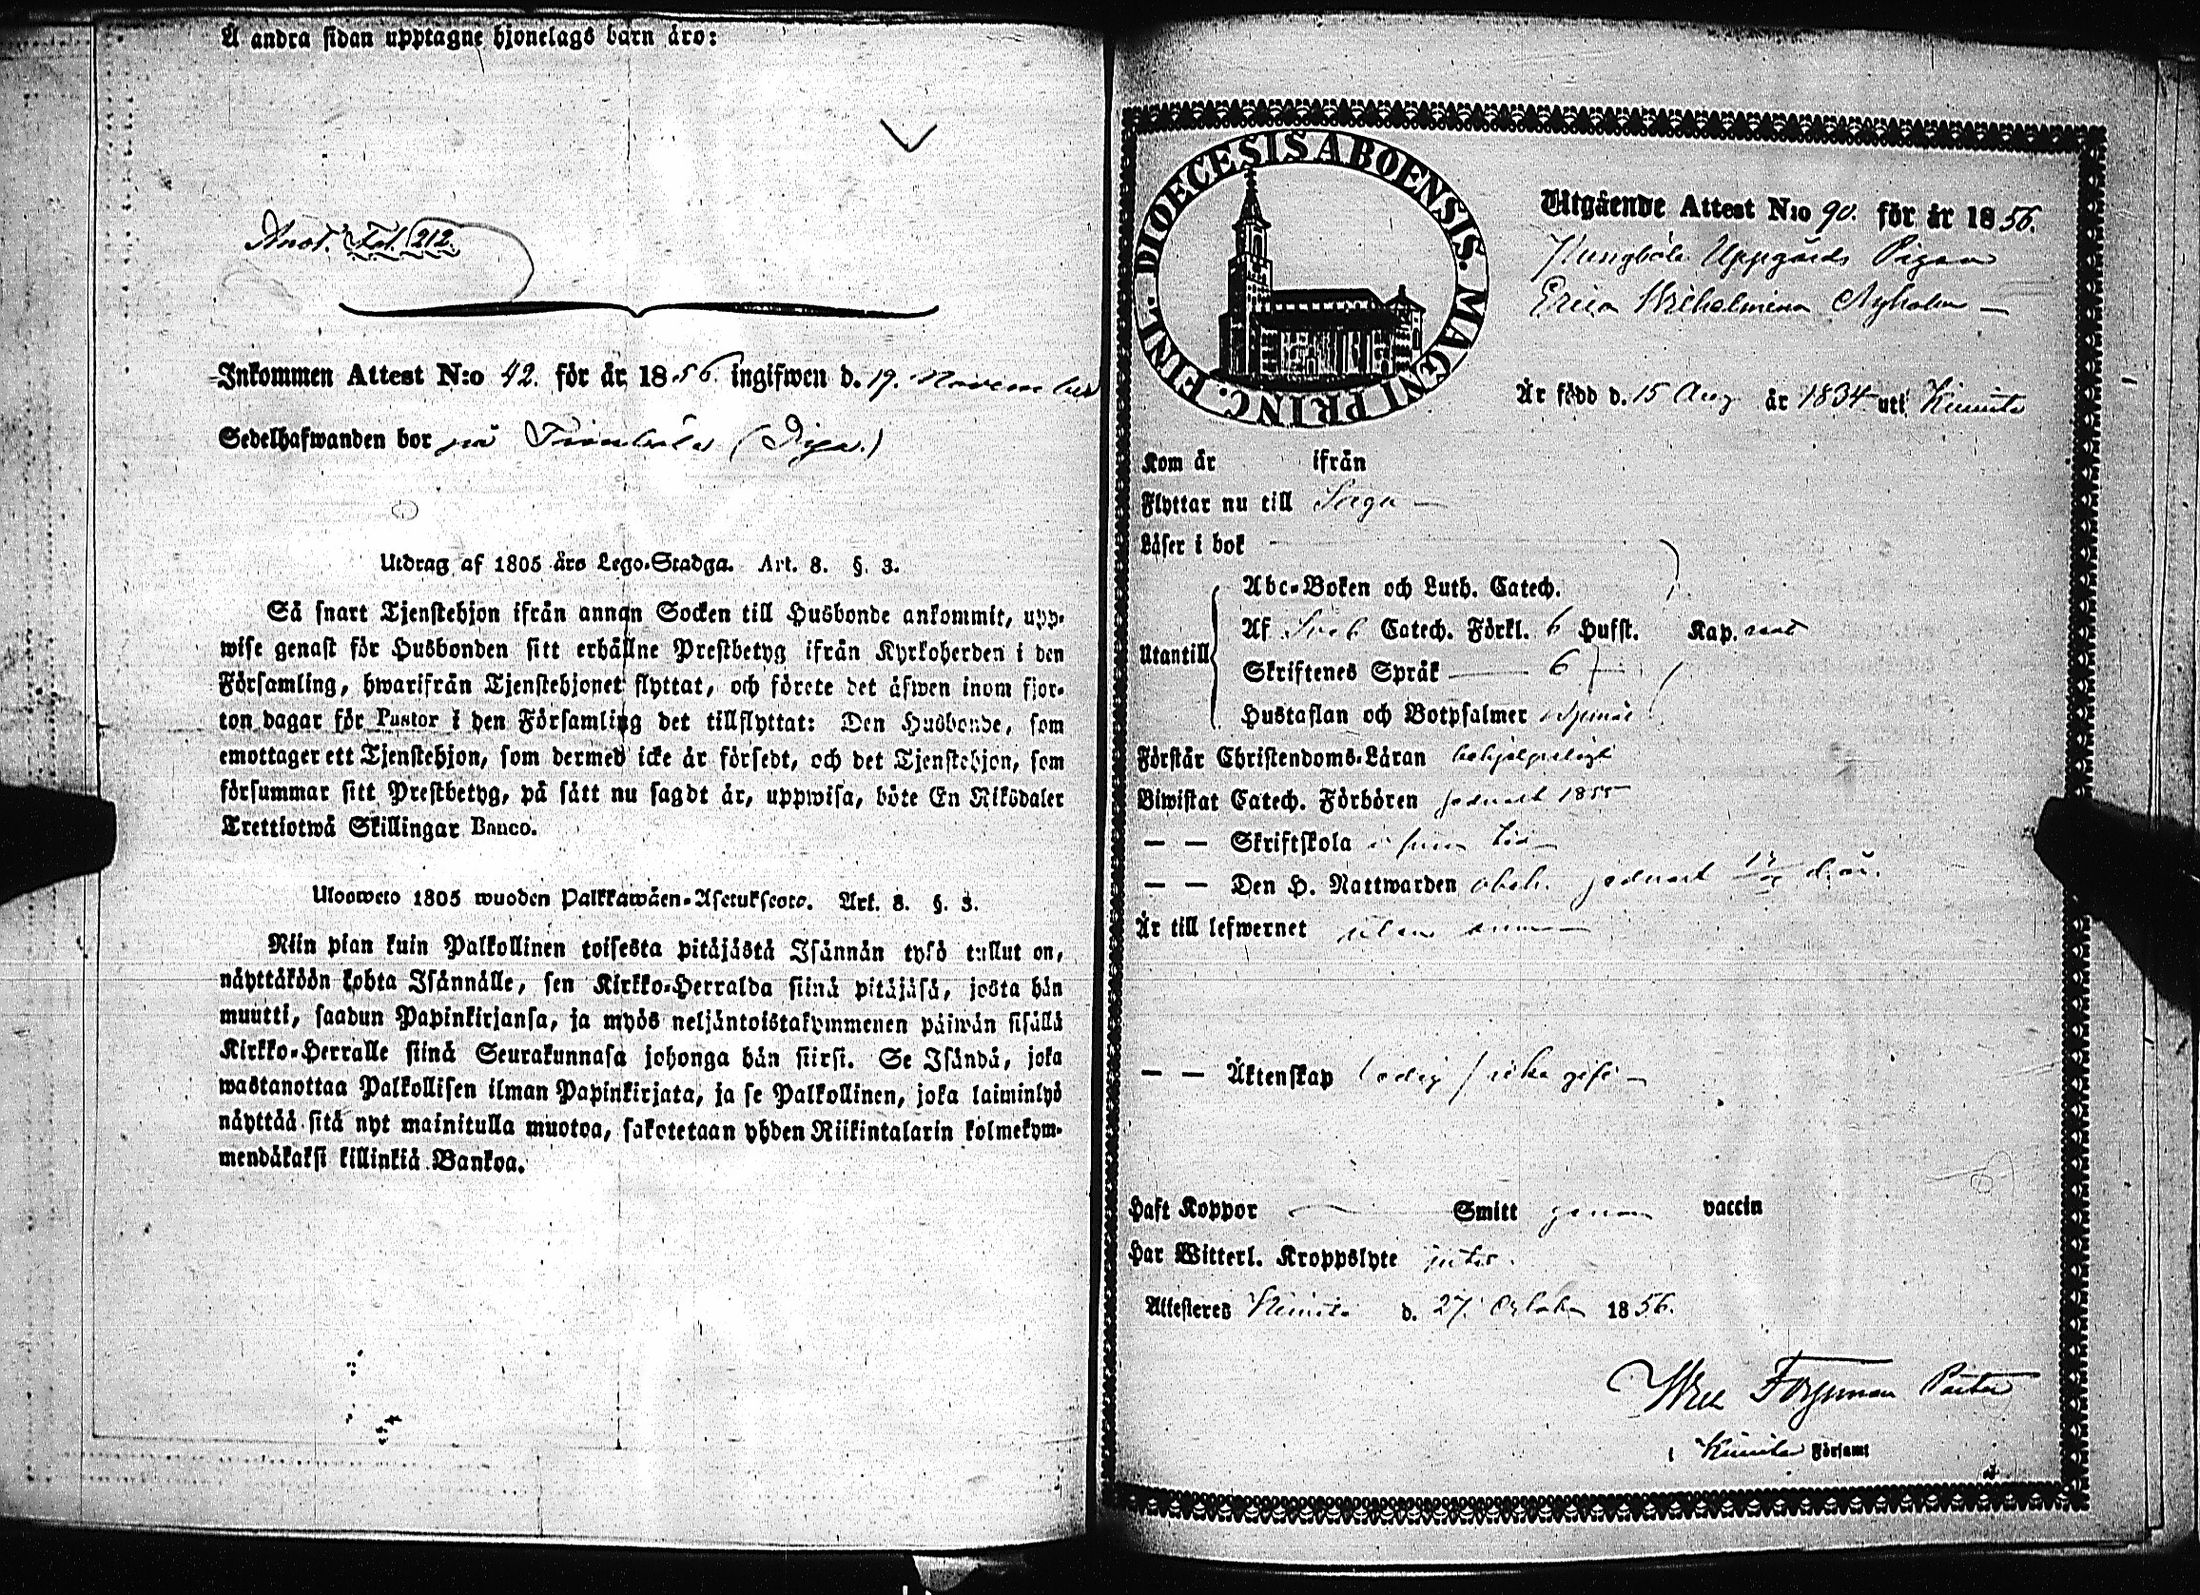 Å andra sidan upptagne hjonelags barn äro:
Anot. Fol. 212.
Inkommen Attest N:o 42. för år 1856. ingifwen d. 19. November
Sedelhafwanden bor på (Piga.)
Utdrag af 1805 års Lego-Stadga. Art. 8. §. 3.
Så snart Tjenstehjon ifrån annan Socken till Husbonde ankommit, upp-
wise genast för Husbonden sitt erhållne Prestbetyg ifrån Kyrkoherden i den
Församling, hwarifrån Tjenstehjonet flyttat, och förete det äfwen inom fjor-
ton dagar för Pastor i den Församling det tillflyttat: Den Husbonde, som
emottager ett Tjenstehjon, som dermed icke är försedt, och det Tjenstehjon, som
försummar sitt Prestbetyg, på sätt nu sagdt är, uppwisa, böte En Riksdaler
Trettiotwå Skillingar Banco.
Ulosweto 1805 wuoden Palkkawäen-Asetuksesta. Art. 8. §. 3.
Niin pian kuin Palkollinen toisesta pitäjästä Isännän tykö tullut on,
näyttäköön kohta Isännälle, sen Kirkko-Herralda siinä pitäjäsä, josta hän
muutti, saadun Papinkirjansa, ja myös neljäntoistakymmenen päiwän sisällä
Kirkko-Herralle siinä Seurakunnasa johonga hän siirsi. Se Isändä, joka
wastanottaa Palkollisen ilman Papinkirjata, ja se Palkollinen, joka laiminlyö
näyttää sitä nyt mainitulla muotoa, sakotetaan yhden Riikintalarin kolmekym-
mendäkaksi killinkiä Bankoa.
FINL. DIOECESIS ABOENSIS. MAGNI PRINC.
Utgående Attest N:o 90. för år 1856.
Uppgårds Pigan
Erica Wilhelmina Nyholm
Är född d. 15 Aug år 1834 uti Kimito
Kom år ifrån
Flyttar nu till Sagu
Läser i bok
Utantill
Abc-Boken och Luth. Catech.
Af Sveb. Catech. Förkl. 6 Hufst. Kap.
Skriftenes Språk 6
Hustaflan och Botpsalmer
Förstår Christendoms-Läran behjelpeligt
Biwistat Catech. Förhören senast 1855
— — Skriftskola i sin tid
— — Den H. Nattwarden obeh. senast d. å.
Är till lefwernet utan anm
— — Äktenskap ledig
Haft Koppor Smitt genom vaccin
Har Witterl. Kroppslyte intet.
Attesteres Kimito d. 27. October 1856.
Forsman Pastor
i Kimito Församl